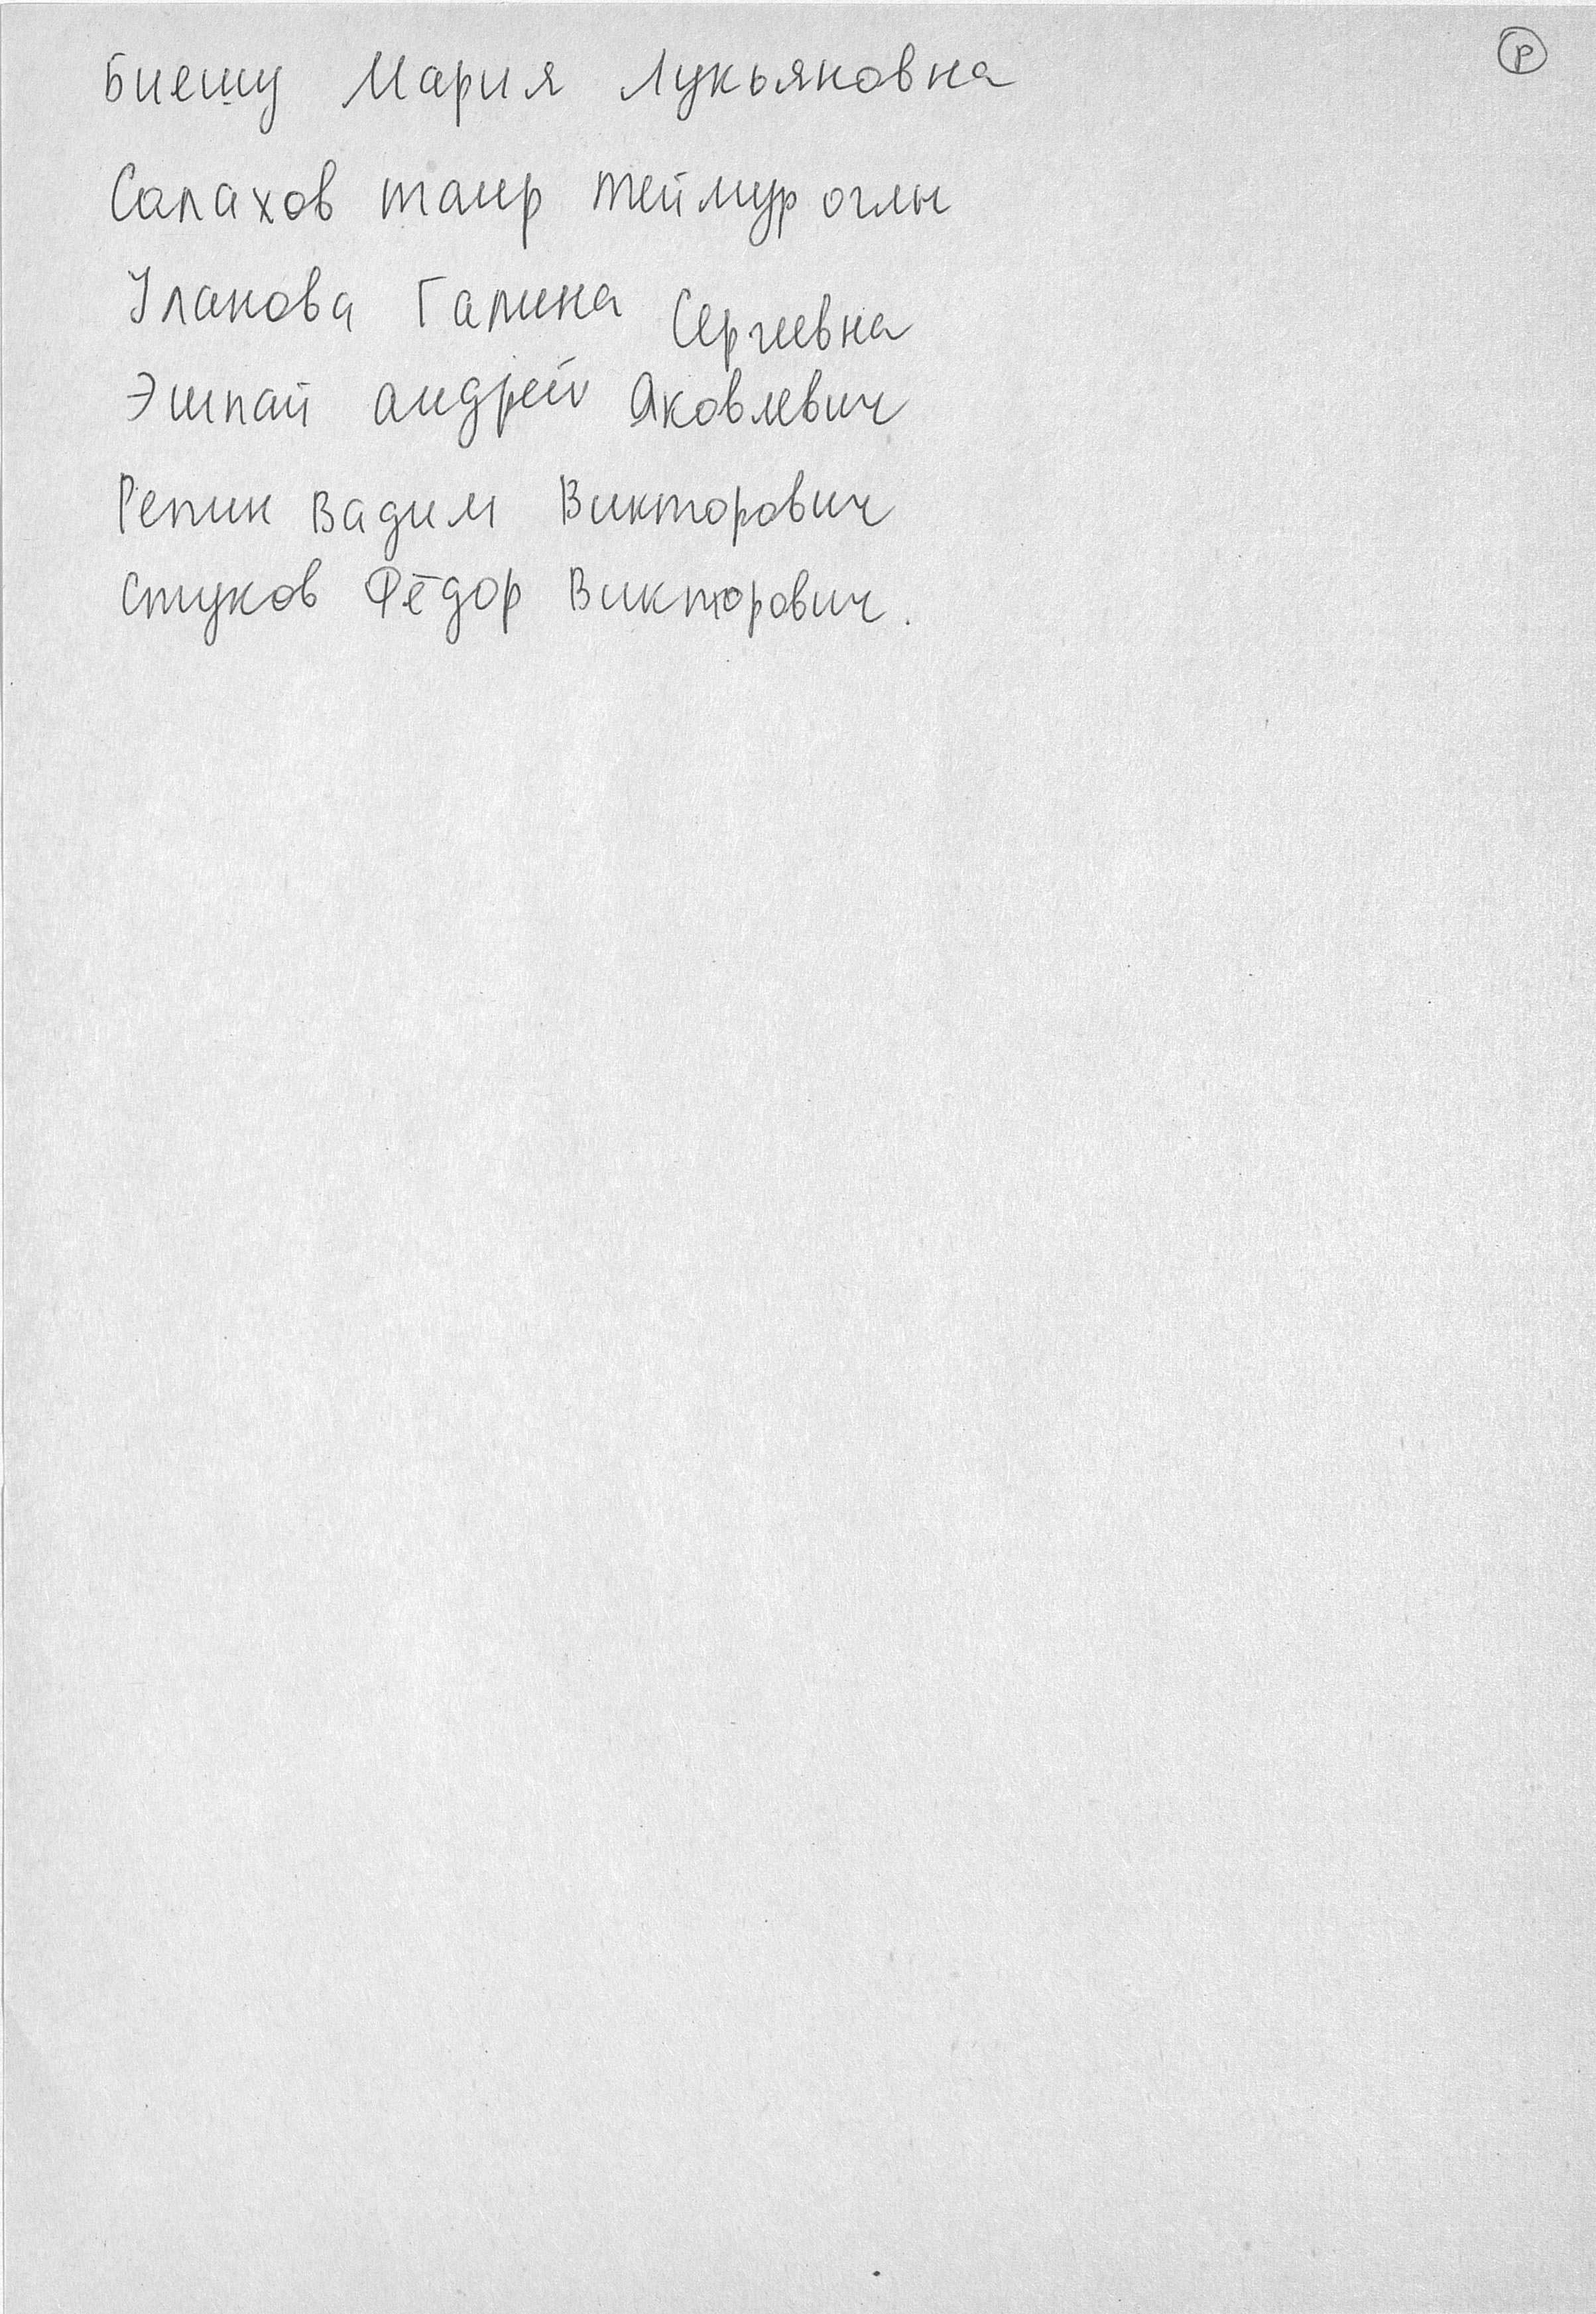 Биешу Мария Лукьяновна
Ⓟ
Салахов таир теймур оглы
Уланова Галина Сергеевна
Эшпай андрей Яковлевич
Репин Вадим Викторович
Стуков Фёдор Викторович.